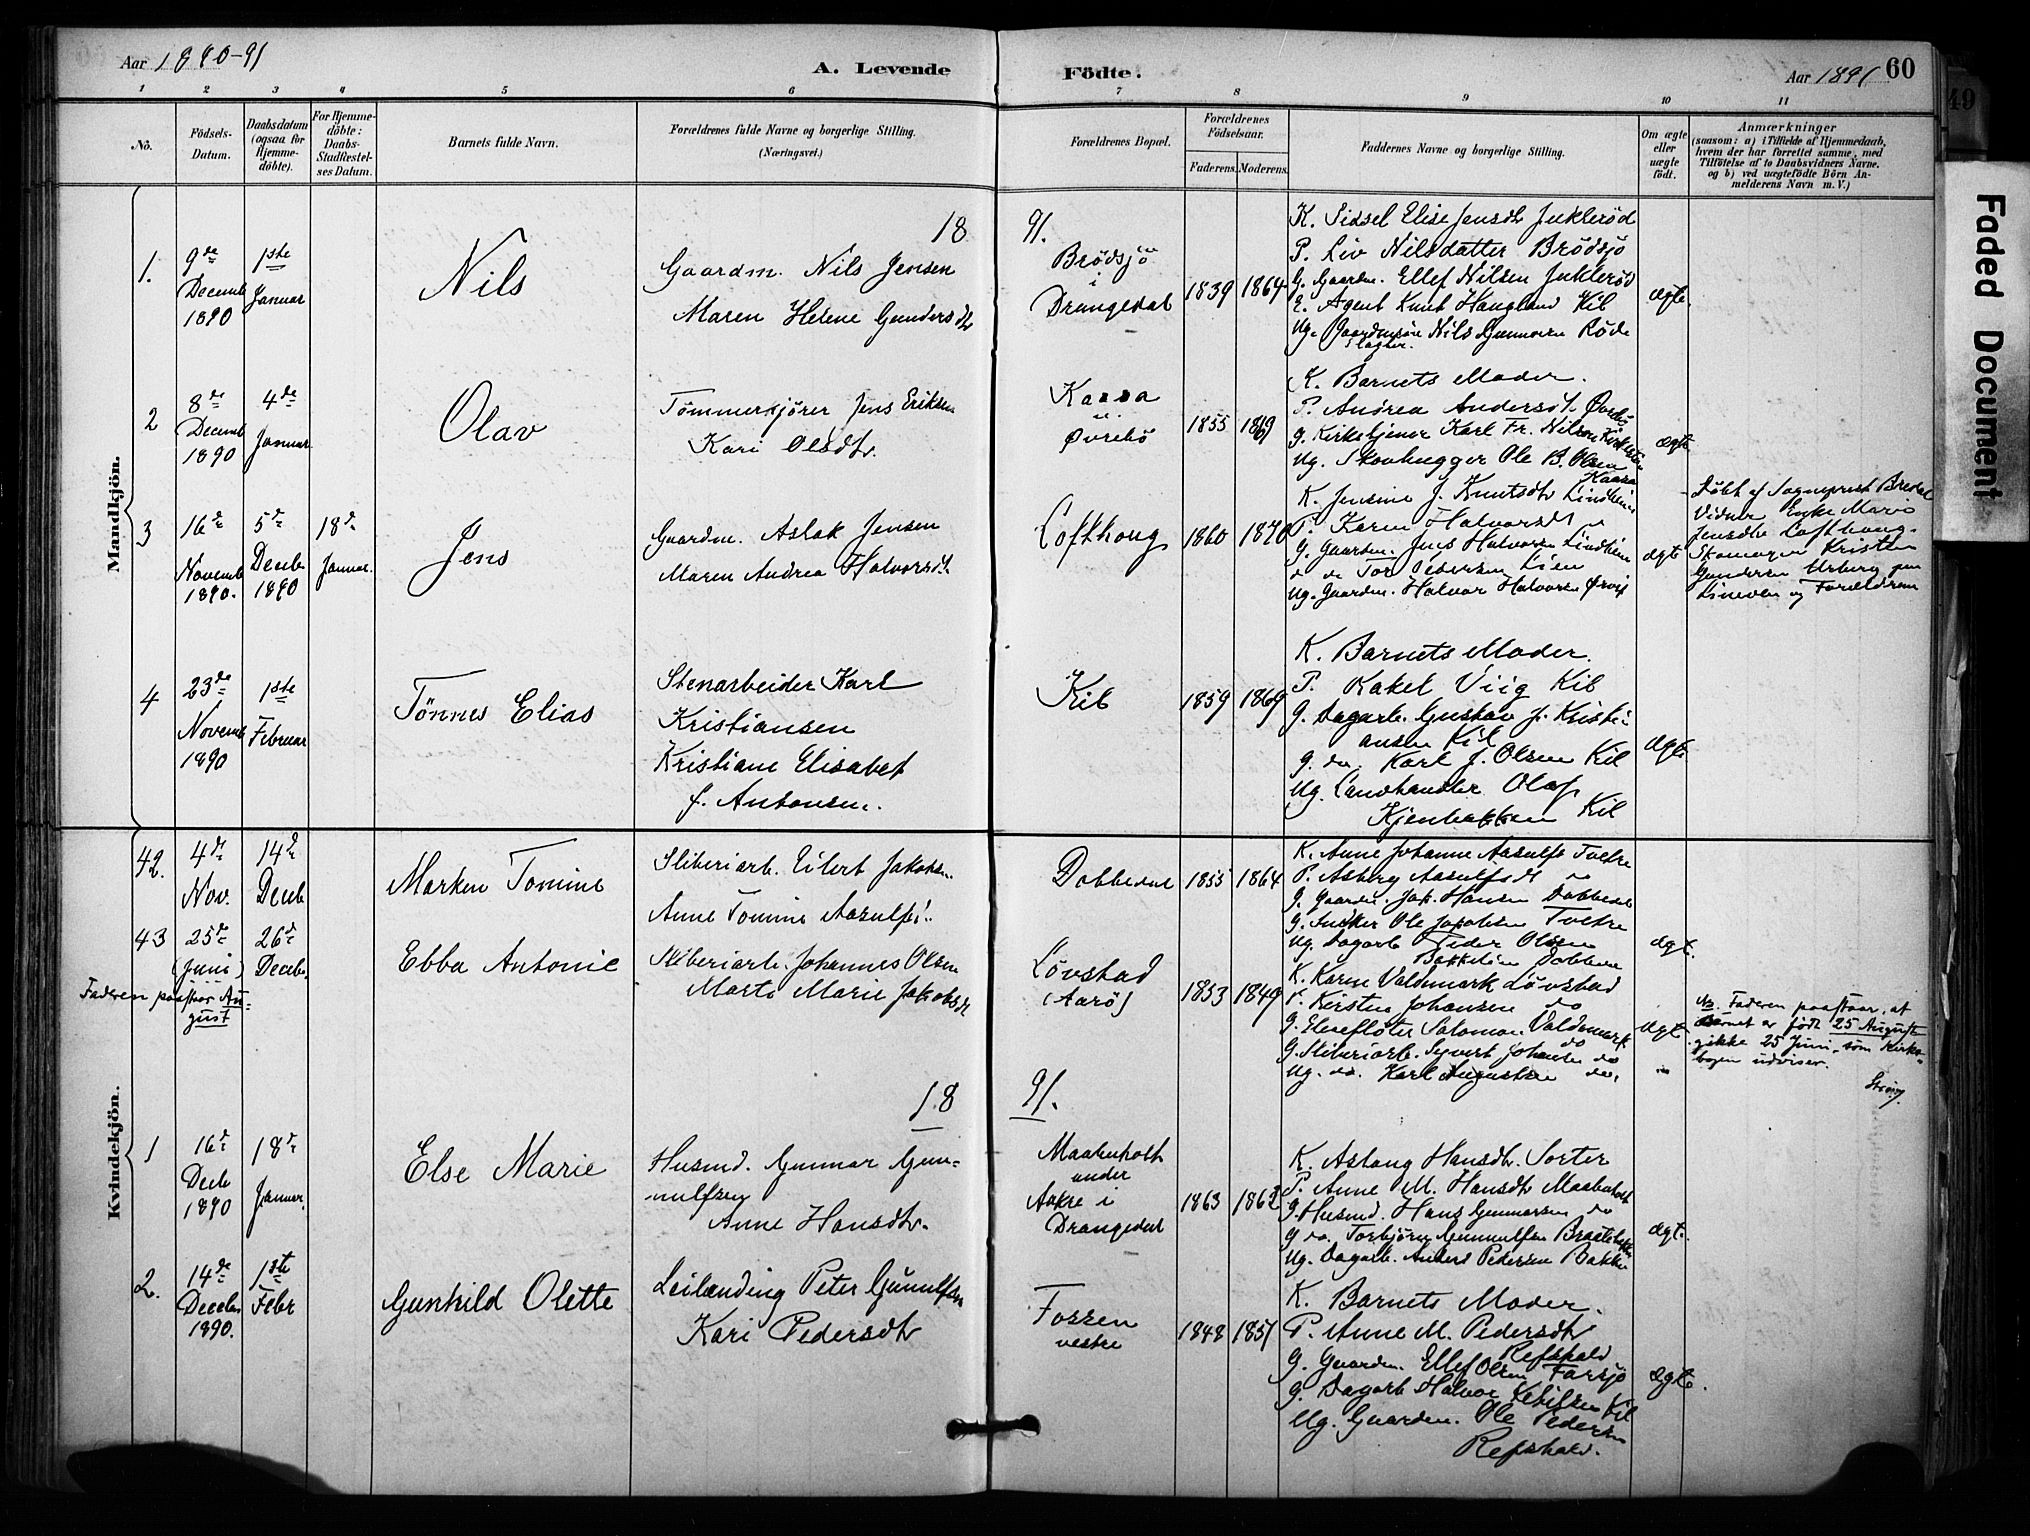 Aar 1890-91
A. Levende
Födte.
Aar 1891
60
49
Faded Document
1 2 3 4 5 6 7 8 9 10 11
No.
Födsels-
Datum.
Daabsdatum
(ogsaa for
Hjemme-
döbte).
For Hjemme-
döbte:
Daabs-
Stadfæstel-
ses Datum.
Barnets fulde Navn.
Forældrenes fulde Navne og borgerlige Stilling.
(Næringsvei.)
Forældrenes Bopæl.
Forældrenes
Födselsaar.
Faderens.
Moderens.
Faddernes Navne og borgerlige Stilling.
Om ægte
eller
uægte
födt.
Anmærkninger
(saasom: a) i Tilfælde af Hjemmedaab,
hvem der har forrettet samme, med
Tilföielse af to Daabsvidners Navne.
og b) ved uægtefödte Börn An-
melderens Navn m. V.)
Mandkjön.
18 91.
1.
9de
Decemb
1890
1ste
Januar
Nils
Gaardm. Nils Jensen
Maren Helene Gundersdtr
Brødsjø
i
Drangedal
1839
1864
K. Sidsel Elise Jensdtr Juklerød
P. Liv Nilsdatter Brødsjø
G. Gaardm. Ellef Nilsen Juklerød
G. Agent Knut Haugland Kil
Ug. Gaardmsøn Nils Gunnarsen Røde
ægte.
2
8de
Decemb
1890
4de
Januar
Olav
Tømmerkjører Jens Eriksen
Kari Olsdtr.
Kaasa
u.
Øvrebø
1855
1869
K. Barnets Moder.
P. Andrea Andersdt. Øvrebø
G. Kirketjener Karl Fr. Nilsen
Ug. Skovhugger Ole B. Olsen
Kaasa
ægte
3
16de
Novemb
1890.
5te
Decbr
1890
18de
Januar.
Jens
Gaardm. Aslak Jensen
Maren Andrea Halvorsdt.
Lofthoug
1860
1870
K. Jensine J. Knutsdtr Lindheim
P. Karen Halvorsdt
G. Gaardm. Jens Halvorsen Lindheim
do do Tor Pedersen Lien
Ug. Gaardm. Halvor Halvorsen Ørvig
ægte
Døbt af Sogneprest Bredal
Vidner Enke Maria
Jensdtr Lofthoug.
Skomager Kristen
Gundersen Urberg paa
og Forældrene
4
23de
Novemb
1890
1ste
Februar
Tønnes Elias
Stenarbeider Karl
Kristiansen
Kristiane Elisabet
f. Antonsen.
Kil
1859
1869
K. Barnets Moder.
P. Rakel Viig Kil
G. Dagarb. Gustav J. Kristi-
ansen Kil
G. do. Karl J. Olsen Kil
Ug. Landhandler Olaf
Kjenbakken Kil
ægte
Kvindekjön.
42.
4de
Nov.
14de
Decb
Marken Tomine
Sliberiarb. Eilert Jakobsn.
Anne Tomine Aasulfsd.
Dobbedal
1855
1864
K. Anne Johanne Aasulfs Tveitre
P. Asberg Aasulfsdt do
G. Gaardm. Jak. Hansen Dobbedal
G. Ole Jakobsen Tveitre
Ug. Dagarb Peder Olsen
ægt.
43
25de
(Juni)
26de
Decbr.
Faderen paastaar Au-
gust
Ebba Antonie
Sliberiarb. Johannes Olsen
Marte Marie Jakobsdt
Løvstad
(Aarø)
1853
1849
K. Karen Valdemark Løvstad
P. Kirsten Johansen do
G. Elvefløter Salomon Valdemark
do
G. Sliberiarb. Syvert Johansen do
Ug. do. Karl Augustsen do.
ægt.
Nb. Faderen paastaar, at
Barnet er født 25 August
og ikke 25 Juni, som Kirke-
bogen udviser.
Strøm.
18 91.
1
16de
Decb
1890
18de
Januar.
Else Marie
Husmd. Gunnar Gun-
nulfsen
Anne Hansdtr.
Maabuholt
under
Aakre i
Drangedal
1863
1862
K. Aslaug Hansdtr. Sorter
P. Anne M. Hansdtr Maabuholt
G. Husmd. Hans Gunnarsen do
G do. Torbjørn Gunnulfsen
Ug. Dagarb. Anders Pedersen Bakke
ægt.
2.
14de
Decebr
1890.
1ste
Febr
Gunhild Olette
Leilænding Peter Gunulfsen
Kari Pedersdtr
Fossen
vestre
1848
1851
K. Barnets Moder.
P. Anne M. Pedersdtr
Refshald
G. Gaardm. Ellef Olsen Farsjø
G. Dagarb. Halvor Ketilsen Kil
Ug. Gaardm. Ole Pedersen
Refshald.
ægte.